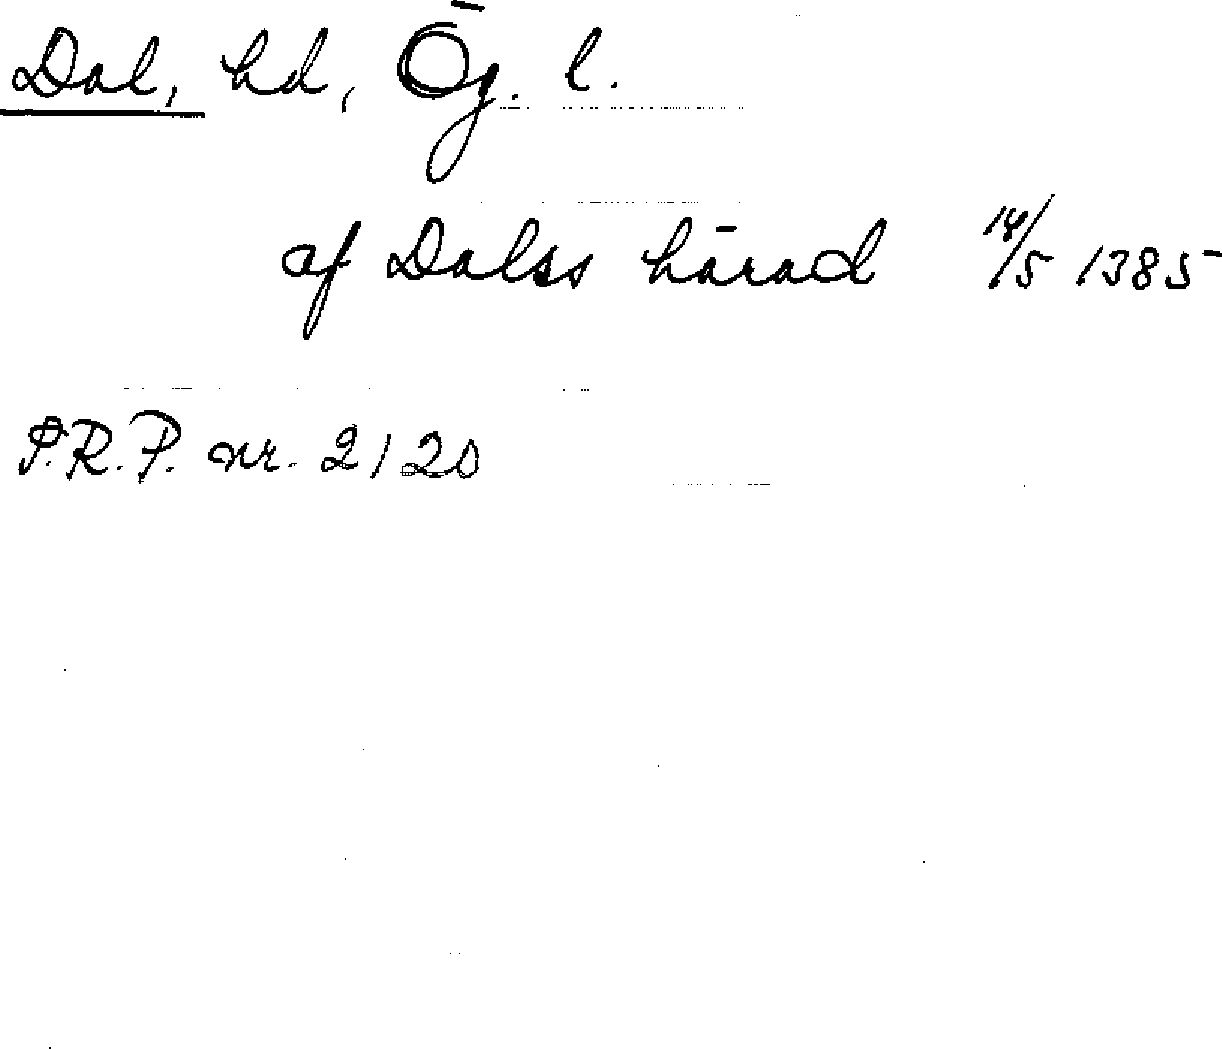 Dal, hd, Ög. l.
af Dalss härad 14/5 1385
S.R.P. nr. 2120